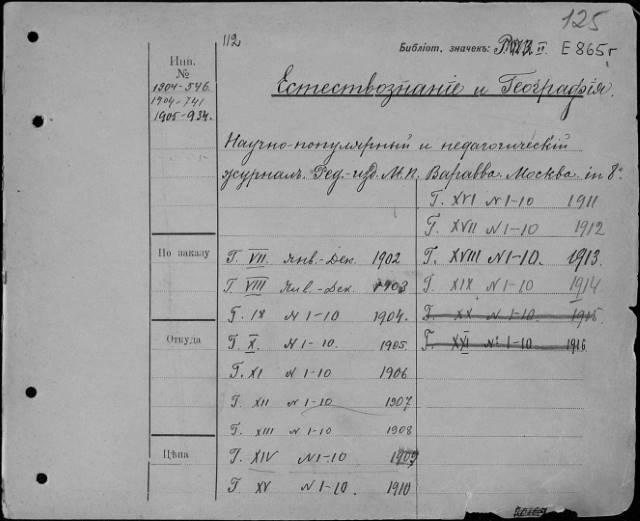 125
112
Библіот. значекъ: II E 865 г
Инв.
№
1904-546
1904-741
1905-934.
Естествознаніе и Географія.
Научно-популярный и педагогическій
журналъ. Ред.-изд. М. П. Варавва. Москва. in 8°
По заказу
Откуда
Цѣна
Г. VII. Янв.-Дек. 1902
Г. VIII Янв.-Дек. 1903
Г. IX N 1-10 1904.
Г. X. N 1-10. 1905
Г. XI N 1-10 1906
Г. XII N 1-10 1907
Г. XIII N 1-10 1908
Г. XIV N 1-10 1909
Г. XV N 1-10. 1910
Г. XVI N 1-10 1911
Г. XVII N 1-10 1912
Г. XVIII N 1-10. 1913.
Г. XIX N 1-10 1914
Г. XX N 1-10. 1915.
Г. XXI N: 1-10 1916